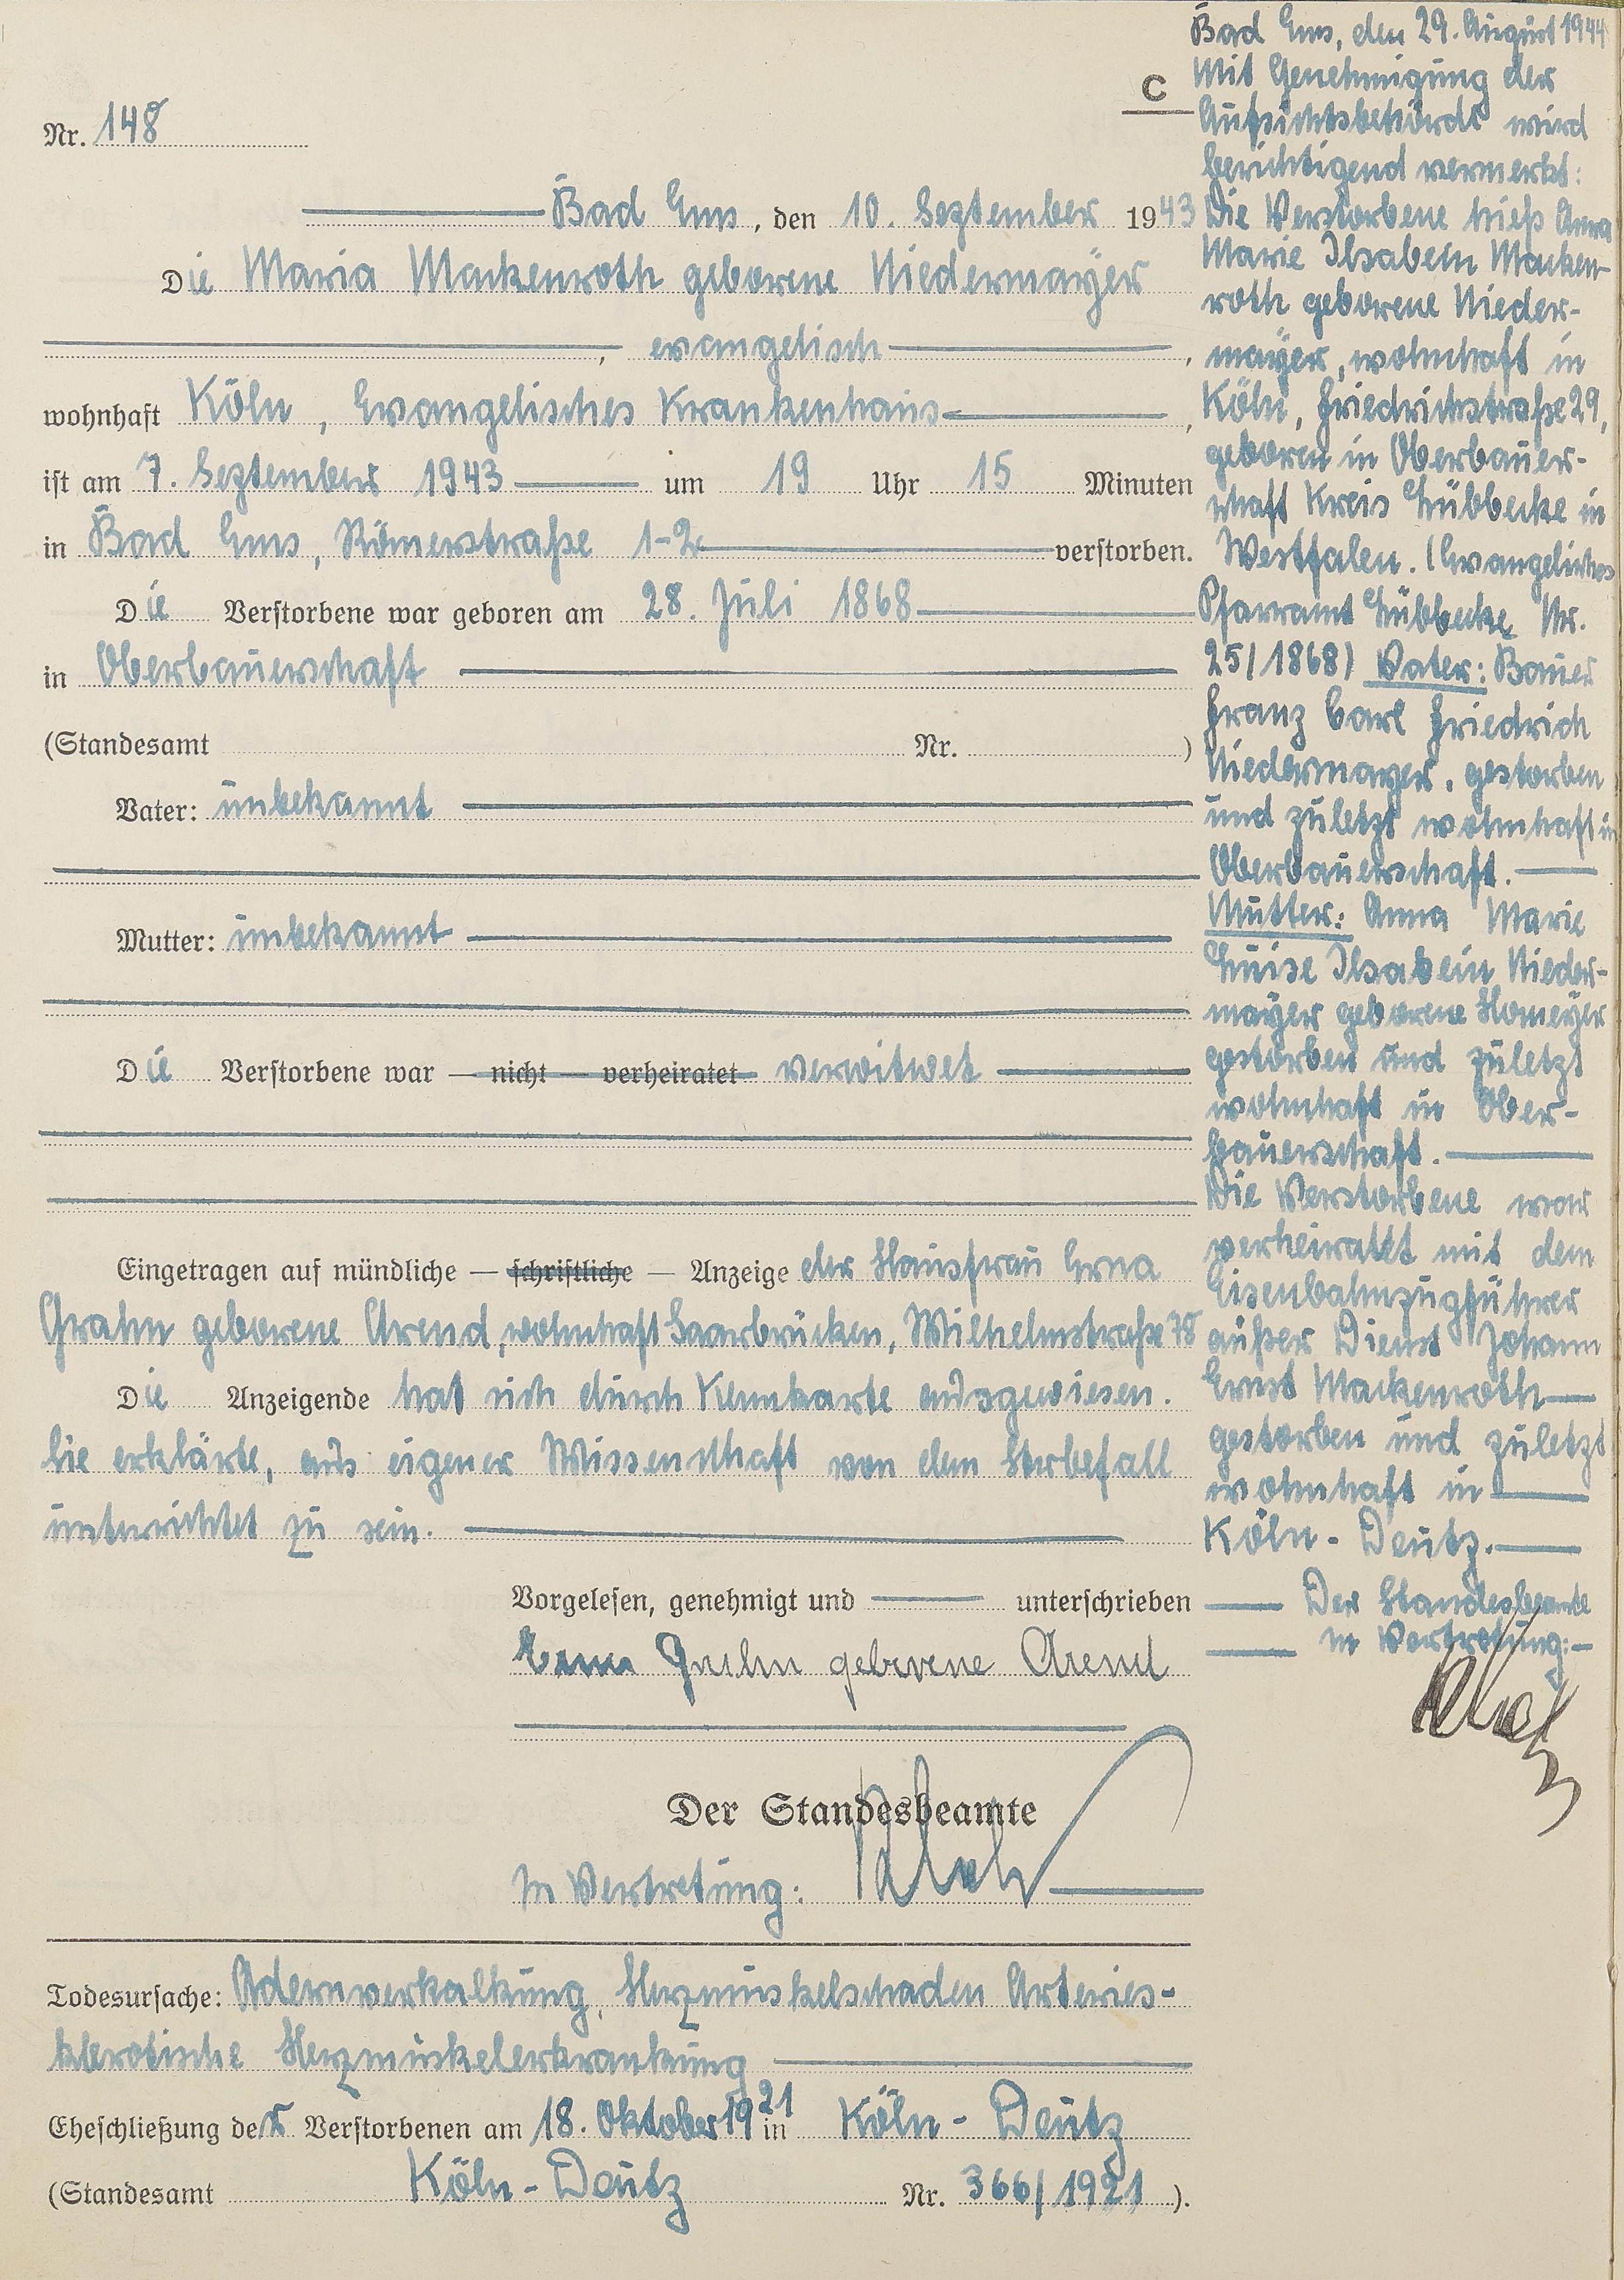 C
Nr. 148
Bad Ems, den 10. September 1943
Die Maria Mackenroth geborene Niedermayer
, evangelisch ,
wohnhaft Köln, Evangelisches Krankenhaus ,
ist am 7. September 1943 um 19 Uhr 15 Minuten
in Bad Ems, Römerstraße 1-2 verstorben.
Die Verstorbene war geboren am 28. Juli 1868
in Oberbauerschaft
(Standesamt Nr. )
Vater: unbekannt
Mutter: unbekannt
Die Verstorbene war — nicht — verheiratet verwitwet
Eingetragen auf mündliche — schriftliche — Anzeige der Hausfrau Erna
Grahn geborene Arend, wohnhaft Saarbrücken, Wilhelmstraße 78
Die Anzeigende hat sich durch Kennkarte ausgewiesen.
Sie erklärte, aus eigener Wissenschaft von dem Sterbefall
unterrichtet zu sein.
Vorgelesen, genehmigt und unterschrieben
Erna Grahn geborene Arend
Der Standesbeamte
In Vertretung:
Todesursache: Adernverkalkung, Herzmuskelschaden Arteries-
klerotische Herzmuskelerkrankung
Eheschließung der Verstorbenen am 18. Oktober 1921 in Köln-Deutz
(Standesamt Köln-Deutz Nr. 366/1921 ).
Bad Ems, den 29. August 1944
Mit Genehmigung der
Aufsichtsbehörde wird
berichtigend vermerkt:
Die Verstorbene hieß Anna
Marie Ilsabein Macken-
roth geborene Nieder-
mayer, wohnhaft in
Köln, Friedrichstraße 29,
geboren in Oberbauer-
schaft Kreis Lübbecke in
Westfalen. (Evangelisches
Pfarramt Lübbecke Nr.
25/1868) Vater: Bauer
Franz Carl Friedrich
Niedermayer, gestorben
und zuletzt wohnhaft in
Oberbauerschaft.
Mutter: Anna Marie
Luise Ilsabein Nieder-
mayer geborene Homeyer
gestorben und zuletzt
wohnhaft in Ober-
bauerschaft.
Die Verstorbene war
verheiratet mit dem
Eisenbahnzugführer
außer Dienst Johann
Ernst Mackenroth
gestorben und zuletzt
wohnhaft in
Köln-Deutz.
Der Standesbeamte
In Vertretung: